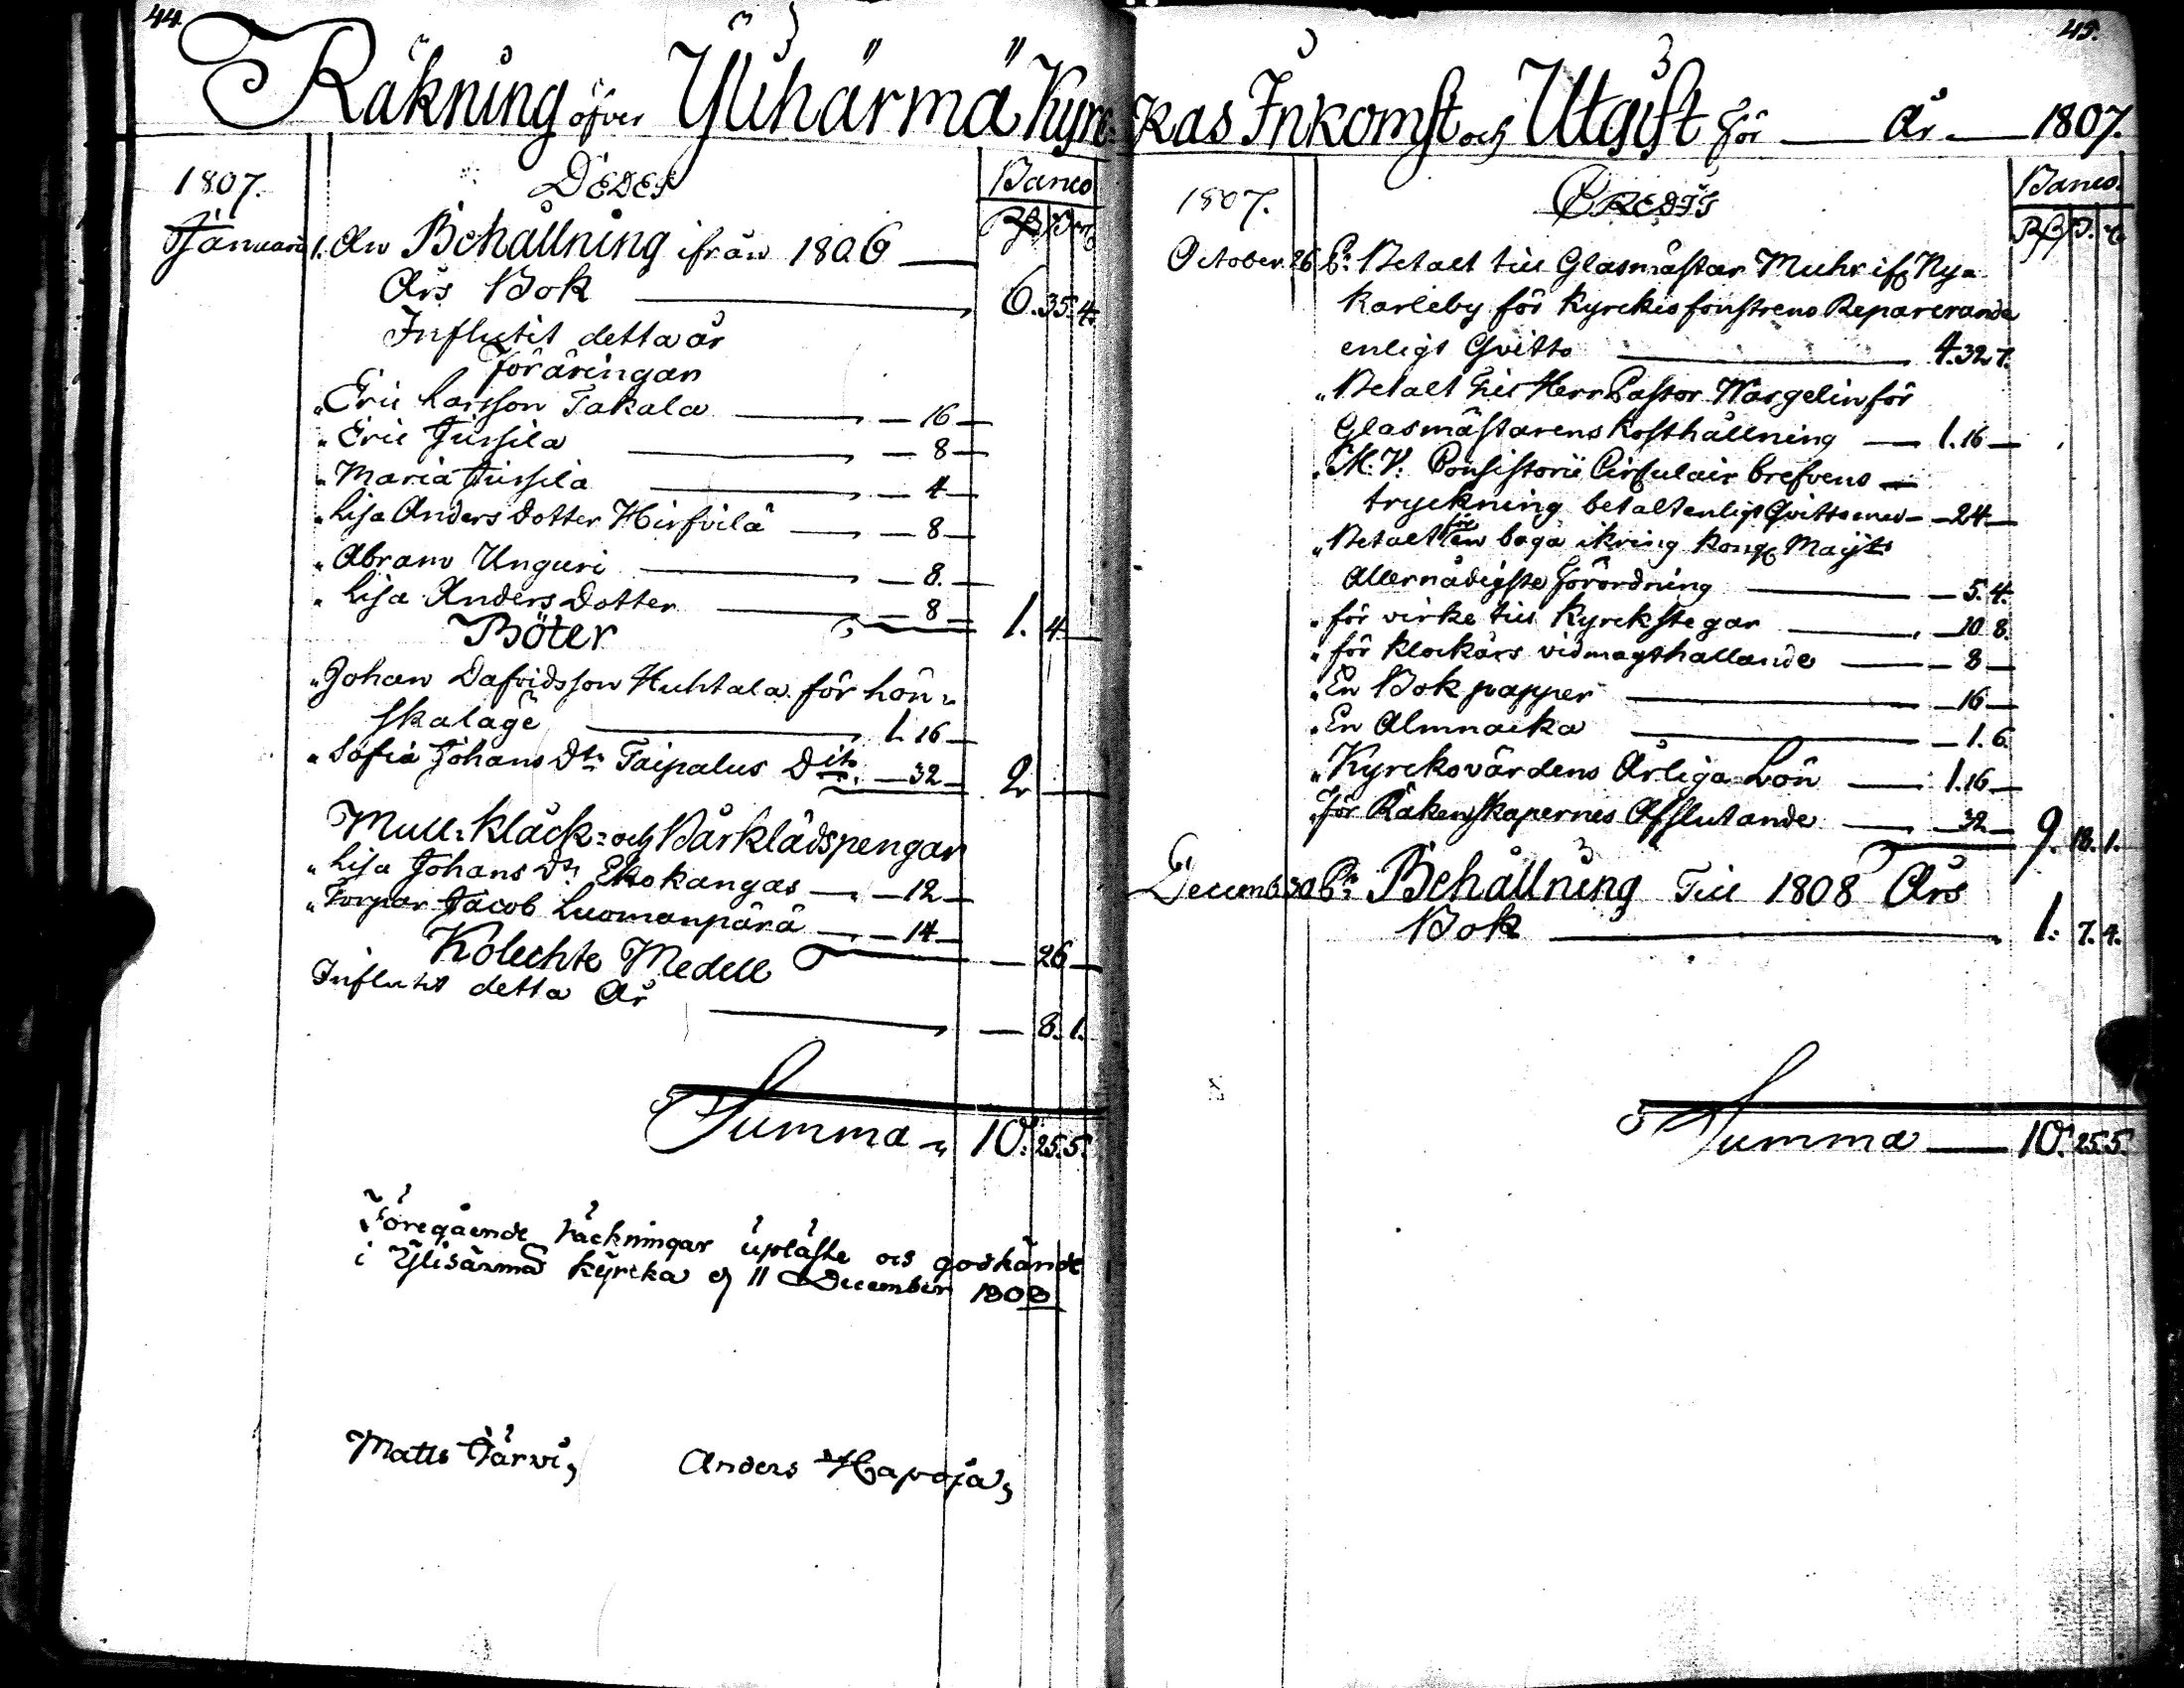 44.
Räkning öfver Ylihärmä Kyrc
1807.
DEBET
Banco
Januarii 1. An Behållning ifrån 1806
Års Bok 6. 35. 4.
Influtit detta år
Föräringar
„ Eric Larsson Takala — 16 —
„ Eric Jussila — 8 —
„ Maria Jussila — 4 —
„ Lisa Anders dotter Hirfvilä — 8 —
„ Abram Unguri — 8. —
„ Lisa Anders Dotter — 8 — 1. 4. —
Böter
„ Johan Dafvidsson Huhtala för hön„
skaläge 1. 16 —
„ Sofia Johans Dr Taipalus Dito — 32 — 2 —
Mull: Kläck: och Bårklädspengar
„ Lisa Johans Dr Ekokangas — 12 —
„ Torpar Jacob Luomanpärä — 14 — — 26 —
Kolechte Medell
Influtit detta År — 8. 1.
Summa 10. 25. 5.
Föregående räckningar upläste och godkände
i Ylihärmä kyrcka d 11 December 1808
Matts Järvi, Anders Hapoja,
45.
kas Inkomst och Utgift för — År — 1807.
1807.
CREDIT
Banco.
October 26 Pr Betalt till Glasmästar Muhr ifr Nya
Karleby för kyrckiofönstrens Reparerande
enligt Qvitto 4. 32. 7.
„ Betalt till Herr Pastor Wargelin för
Glasmästarens kosthållning — 1. 16 —
„ M. V. Consistorii Circulair brefvens
tryckning betalt enligt Qvittence — 24 —
„ Betalt för en båga ikring Kongl Maijts
Allernådigste Förordning — 5. 4.
„ för virke till Kyrckstegar — 10. 8.
„ för klockars vidmagthallande — 8 —
„ En Bok papper — 16 —
„ En Almnacka — 1. 6.
„ Kyrckovärdens Årliga Lön — 1. 16 —
„ för Räkenskapernes Afslutande — 32 — 9. 18. 1.
Decemb 30 Pr Behållning Till 1808 Års
Bok 1. 7. 4.
Summa — 10. 25. 5.